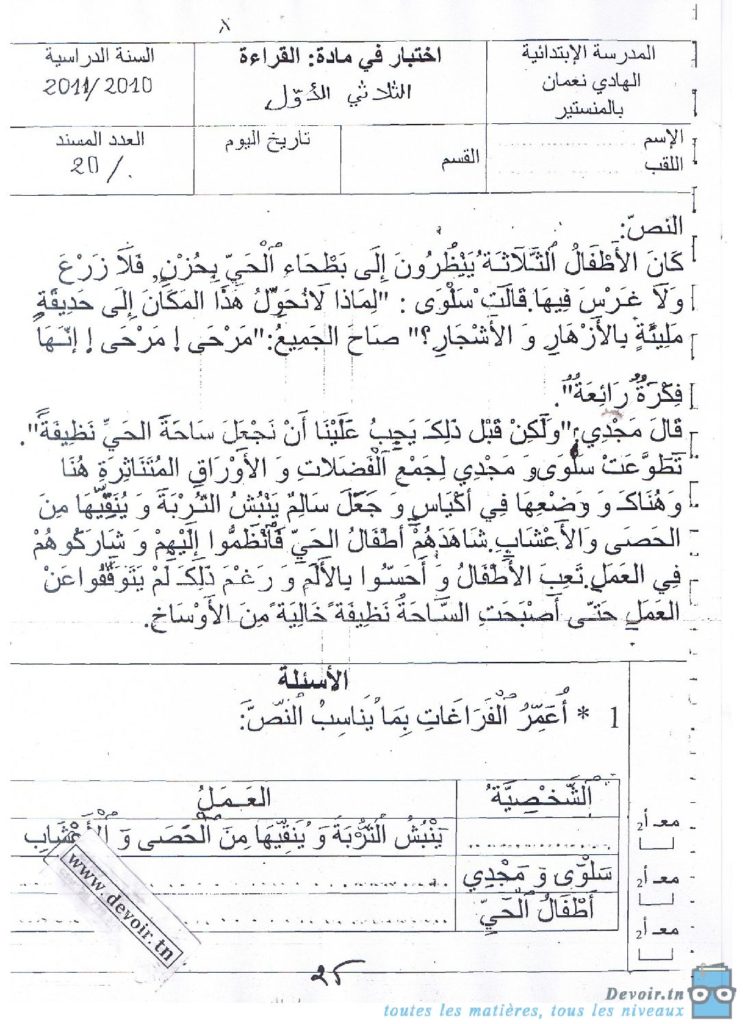 المدرسة الإبتدائية
الهادي نعمان
بالمنستير
اختبار في مادة: القراءة
الثلاثي الأوّل
السنة الدراسية
2011/2010
الإسم
اللقب
القسم
تاريخ اليوم
العدد المسند
20 /.
النصّ:
كَانَ الأَطْفَالُ الثَّلَاثَةُ يَنْظُرُونَ إِلَى بَطْحَاءِ الْحَيِّ بِحُزْنٍ, فَلَا زَرْعَ
وَلَا غَرْسَ فِيهَا.قَالَتْ سَلْوَى : "لِمَاذَا لَا نُحَوِّلُ هَذَا المَكَانَ إِلَى حَدِيقَةٍ
مَلِيئَةٍ بِالأَزْهَارِ وَ الأَشْجَارِ؟" صَاحَ الجَمِيعُ:"مَرْحَى ! مَرْحَى ! إِنَّهَا
فِكْرَةٌ رَائِعَةٌ".
قَالَ مَجْدِي:"ولَكِنْ قَبْلَ ذَلِكَ يَجِبُ عَلَيْنَا أَنْ نَجْعَلَ سَاحَةَ الحَيِّ نَظِيفَةً".
تَطَوَّعَتْ سَلْوَى وَ مَجْدِي لِجَمْعِ الْفَضَلَاتِ وَ الأَوْرَاقِ المُتَنَاثِرَةِ هُنَا
وَ هُنَاكَ وَ وَضْعِهَا فِي أَكْيَاسٍ وَ جَعَلَ سَالِمٌ يَنْبُشُ التُرْبَةَ وَ يُنَقِّيهَا مِنَ
الحَصَى وَالأَعْشَابِ.شَاهَدَهُمْ أَطْفَالُ الحَيِّ فَانْظَمُّوا إِلَيْهِمْ وَ شَارَكُوهُمْ
فِي العَمَلِ.تَعِبَ الأَطْفَالُ وَ أَحَسُّوا بِالأَلَمِ وَ رَغْمَ ذَلِكَ لَمْ يَتَوَقَّفُوا عَنْ
العَمَلِ حَتَّى أَصْبَحَتِ السَّاحَةُ نَظِيفَةً خَالِيَةً مِنَ الأَوْسَاخِ.
الأسئلة
1 * أُعَمِّرُ الْفَرَاغَاتِ بِمَا يُنَاسِبُ النَّصَّ:
الشَّخْصِيَّةُ
العَمَلُ
مع أ2
يَنْبُشُ التُّرْبَةَ وَ يُنَقِّيهَا مِنَ الْحَصَى وَ الْأَعْشَابِ
مع أ2
سَلْوَى وَ مَجْدِي
مع أ2
أَطْفَالُ الْحَيِّ
www.devoir.tn
25
Devoir.tn
toutes les matières, tous les niveaux